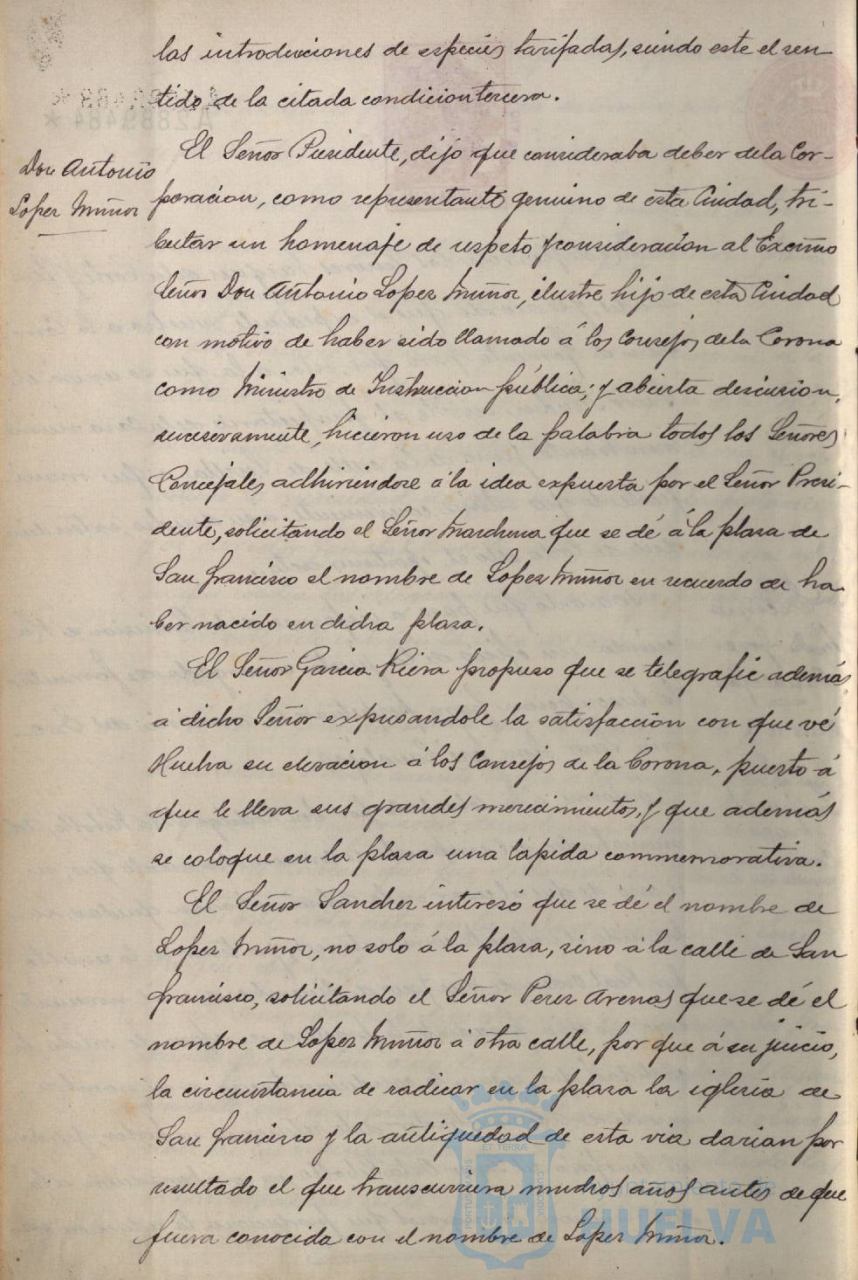 las introducciones de especies tarifadas, siendo este el sen-
tido de la citada condicion tercera.
Don Antonio
Lopez Muñoz
El Señor Presidente, dijo que consideraba deber de la Cor-
poracion, como representante genuino de esta Ciudad, tri-
butar un homenaje de respeto y consideracion al Excmo
Señor Don Antonio Lopez Muñoz, ilustre hijo de esta Ciudad
con motivo de haber sido llamado á los Consejos de la Corona
como Ministro de Instruccion pública; y abierta discusion,
sucesivamente, hicieron uso de la palabra todos los Señores
Concejales adhiriéndose á la idea expuesta por el Señor Presi-
dente, solicitando el Señor Marchena que se dé á la plaza de
San Francisco el nombre de Lopez Muñoz en recuerdo de ha
ber nacido en dicha plaza.
El Señor Garcia Riera propuso que se telegrafie además
á dicho Señor expresandole la satisfaccion con que vé
Huelva su elevacion á los Consejos de la Corona, puesto á
que le lleva sus grandes merecimientos, y que además
se coloque en la plaza una lapida commemorativa.
El Señor Sanchez interesó que se dé el nombre de
Lopez Muñoz, no solo á la plaza, sino á la calle de San
Francisco, solicitando el Señor Perez Arenas que se dé el
nombre de Lopez Muñoz á otra calle, por que á su juicio,
la circunstancia de radicar en la plaza la iglesia de
San Francisco y la antiguedad de esta via darian por
resultado el que transcurriera muchos años antes de que
fuera conocida con el nombre de Lopez Muñoz.
HUELVA